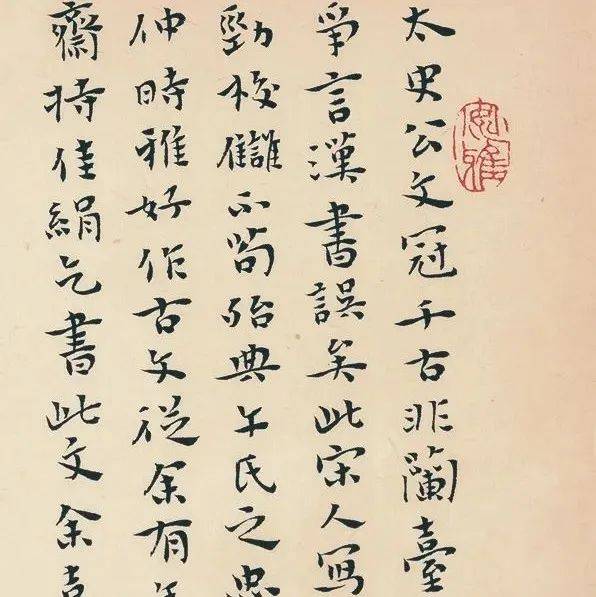 太史公文冠千古非蘭臺
爭言漢書誤矣此宋人寫
勁校讎不苟殆典午氏之忠
仲時雅好作古文從余有
齋持佳絹乞書此文余喜